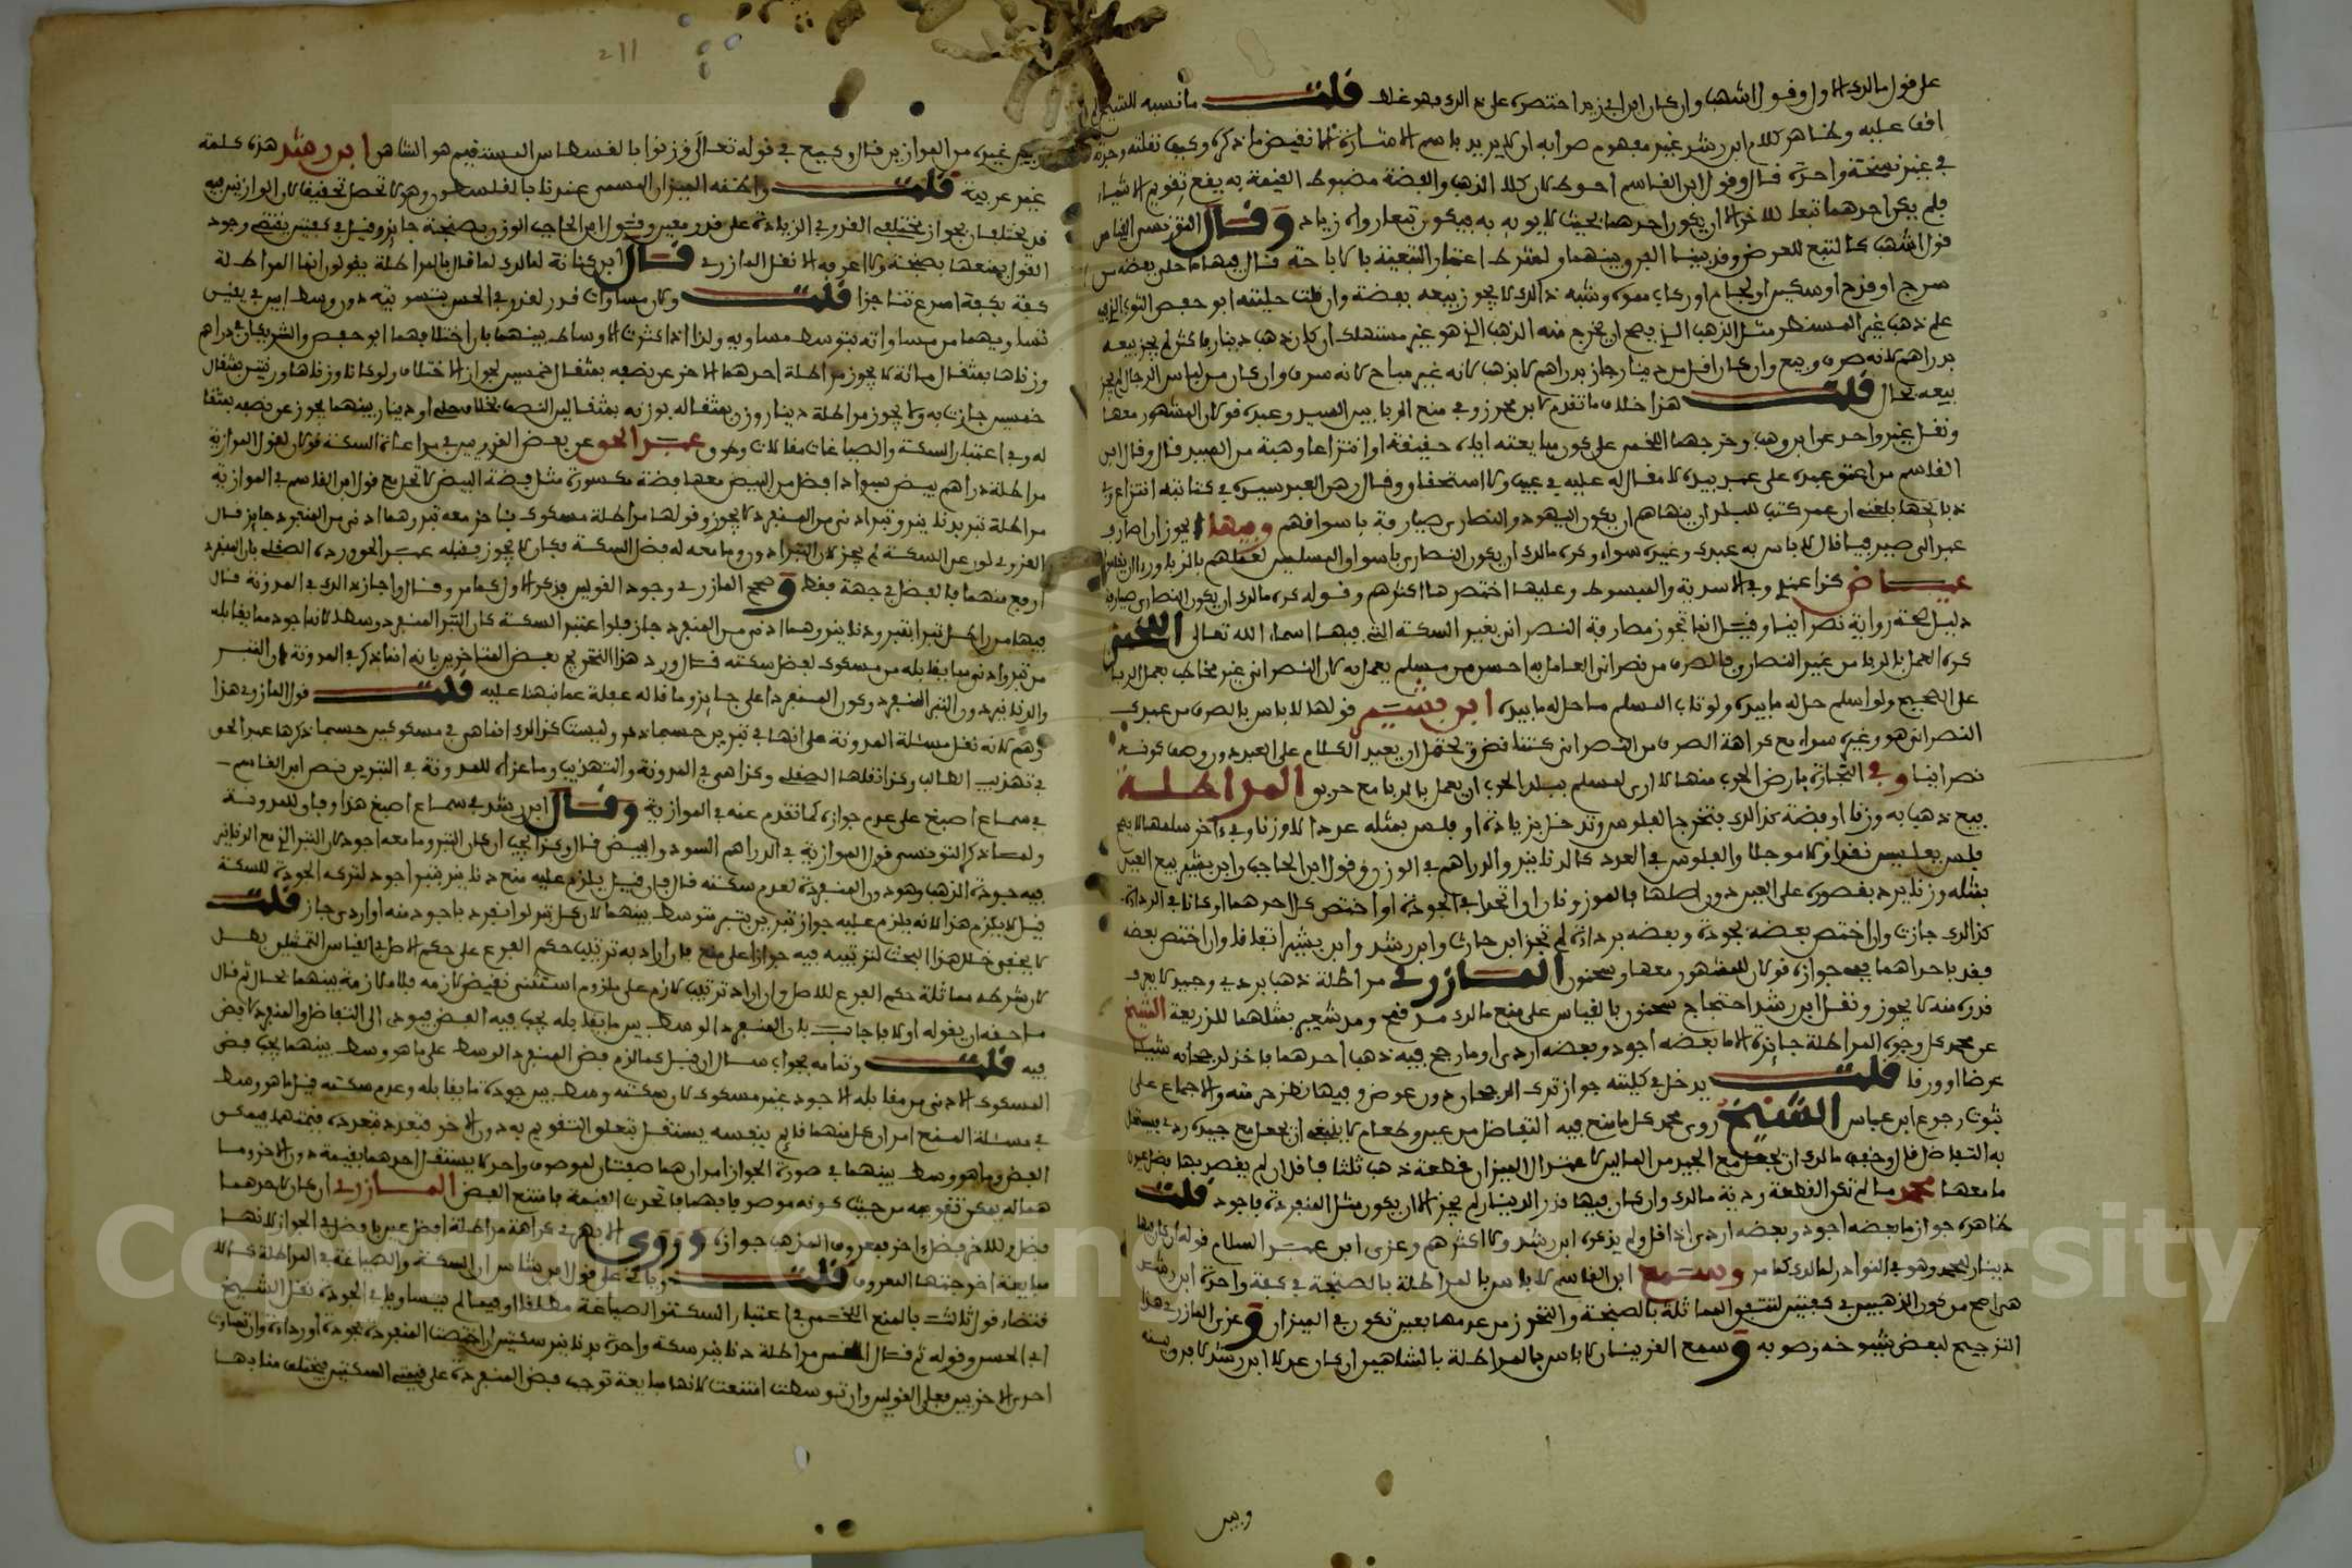 على قول مالك الاول وقول اشهب وان كان ابن ابي زيد اختصره على ذلك فهو غلط قلت ما نسبه للشيخ
عليه وظاهر كلام ابن رشد غير مفهوم صوابه ان لا يريد باسم الاشارة نقيض ما ذكره وكيف نقلته وجدته
في غير نسخة واحدة قال وقول ابن القاسم احوط لان كلا الذهب والفضة مضبوط القيمة به يقع تقويم الاشياء
فلم يكن احدهما تبعا للاخر الا ان يكون احدهما بحيث لا يوبه به فيكون تبعا وقال التونسي القياس
قول اشهب
سرج او قدح او سكين او لجام او ركاب مموه وشبه ذلك لا يجوز بيعه بفضة وان قلت حليته ابو حفص
على ذهب غير المستهلك مثل الذهب الذي يصح ان يخرج منه الذهب الذي هو غير مستهلك ان كان ذهب دينار فاكثر لم يجز بيعه
بدراهم لانه صرف وبيع وان كان اقل من دينار جاز بدراهم لا بذهب لانه غير مباح لانه سرف وان كان من لباس الرجال لم يجز
بيعه بحال قلت هذا خلاف ما تقدم لابن محرز وفي منع الربا بين السيد وعبده قولان المشهور معها
ونقل غير واحد عن ابن وهب وخرجهما اللخمي على كون مبايعته اياه حقيقة او انتزاعا وهبة من السيد قال وقال ابن
القاسم من اعتق عبده على عبد بيده لا مقال له عليه في عيب ولا استحقاق
بلغني ان عمر كتب للبلدان ينهاهم ان يكون اليهود والنصارى صيارفة باسواقهم وفيها ايجوز ان اصارف
عبدا لي صيرفيا قال لا باس به عبدك وغيره سواء وكره مالك ان يكون النصارى باسواق المسلمين لعملهم بالربا
عياض كذا عندي وفي الاسدية والمبسوط وعليها اختصرها اكثرهم وقوله كره مالك ان يكون النصارى صيارفة
دليل صحة رواية نصرانيا وقيل انما تجوز مصارفة النصراني بغير السكة التي فيها اسماء الله تعالى الشيخ
كره العمل بالربا من غير النصارى فالصرف من نصراني العامل به احسن من مسلم يعمل به لان النصراني غير مخاطب بعمل الربا
على الصحيح ولو اسلم حل له ما بيده ولو تاب المسلم ما حل له ما بيده ابن بشير قولها لا باس بالصرف من عبدك
النصراني هو وغيره سواء مع كراهة الصرف من النصراني
نصرانيا وفي التجارة بارض الحرب منها لا ارى لمسلم ببلد الحرب ان يعمل بالربا مع حربي المراطلة
بيع ذهب به وزنا او فضة كذلك فتخرج الفلوس وتدخل بزيادة او فلس بمثله عددا لا وزنا وفي اخر سلمها لا يصح
فلس بفلسين نقدا ولا موجلا والفلوس في العدد كالدنانير والدراهم في الوزن وقول ابن الحاجب وابن بشير بيع العين
بمثله وزنا يرد بقصوره على العين دون اصلها فالموزونان ان اتحدا في الجودة او اختص كل احدهما او كانا في الرداءة
كذلك جازت وان اختص بعضه بجودة وبعضه برداءة لم تجز ابن حارث وابن رشد وابن بشير اتفاقا وان اختص بعضه
فقد باحداهما ففي جوازه قولان للمشهور معها وسحنون المازري مراطلة ذهب بردي وجيد لا يعرف
قدره منه لا يجوز ونقل ابن رشد احتجاج سحنون بالقياس على منع مالك مد قمح ومد شعير بمثلهما للذريعة الشيخ
عن محمد كل وجوه المراطلة جائزة الا ما بعضه اجود وبعضه اردى او ما رجح فيه ذهب احدهما ياخذ لرجحانه شيئا
عرضا او ورقا قلت يدخل في كليته جواز ترك الرجحان دون عوض وفيها نظر منه والاجماع على
ثبوت رجوع ابن عباس الشيخ روى محمد كل ما منع فيه التفاضل من عين وطعام لا ينبغي ان يجعل مع جيده ردي يستحل
به التفاضل قال
ما معها محمد ما لم تكن القطعة ردية مالك وان كان فيها قدر الدينار لم يجز الا ان يكون مثل المنفردة فاجود قلت
ظاهره جواز ما بعضه اجود وبعضه اردى اذا قل ولم يذكره ابن رشد ولا اكثرهم وعزى ابن عبد السلام
دينار لمحمد وهو في النوادر لمالك كما مر وسمع ابن القاسم لا باس بالمراطلة بالصنجة في كفة واحدة ابن رشد
هي اصح من كون الذهبين في كفتين لتيقن المماثلة بالصنجة والتحرز من عدمها بعين تكون في الميزان وعزى المازري هذا
الترجيح لبعض شيوخه وصوبه وسمع القرينان لا باس بالمراطلة بالشاهين ان كان عدلا ابن رشد
وبين
211
غيره من الموازين قال وكيع في قوله تعالى وزنوا بالقسطاس المستقيم هو الشاهين ابن رشد هذه كلمة
غير عربية قلت واظنه الميزان المسمى عندنا بالفلسطون
قول ابن الحاجب الوزن بصنجة جائز وقيل في كفتين يقتضي وجود
القول بمنعها بصنجة ولا اعرفه الا نقل المازري قال ابن كنانة لمالك لما قال بالمراطلة يقولون انما المراطلة
كفة بكفة اسرع تناجزا قلت
تساويهما من مساواته بتوسط مساويه ولذا اذا كثرت الاوساط بينهما بان اختلافهما ابو حفص والشريكان في دراهم
وزناها بمثقال مائة لا يجوز مراطلة احدهما الاخر عن نصفه بمثقال خمسين لجواز الاختلاف ولو كانا وزناها ورقتين بمثقال
خمسين جازت به ولا يجوز مراطلة دينار وزن بمثقاله بوزنه بمثقال
وفي اعتبار السكة والصياغات مقالات عبد الحق عن بعض القرويين في مراعاة السكة قولان لقول الموازية
مراطلة دراهم بيض بسواد افضل من البيض معها فضة مكسورة مثل فضة البيض لا تحل مع قول ابن القاسم في الموازية
مراطلة تبر بدنانير وتبر ادنى من المنفرد لا يجوز وقولها مراطلة مسكوك باخر معه تبر وهما ادنى من المنفرد جائز قال
ارفع منهما فالفضل في جهة فقط وصحح المازري وجود القولين بذكر الاول كما مر وقال واجاز ذلك في المدونة قال
فيها من راطل تبرا بتبر ودنانير وهما ادنى من المنفرد جاز فلو اعتبر السكة كان التبر المنفرد وسطا لانه اجود مما يقابله
من تبر وادنى مما يقابله من مسكوك لفضل سكته قال ورد هذا التخريج بعض المتاخرين بانه انما ذكر في المدونة ان التبر
والدنانير دون التبر المنفرد وكون المنفرد اعلى جائز وما قاله غفلة عما نبهنا عليه قلت قول المازري هذا
وهم لانه نقل مسئلة المدونة على انها في تبرين حسبما مر وليست كذلك انما هي في مسكوكين حسبما ذكرها عبد الحق
في تهذيب الطالب وكذا نقلها الصقلي وكذا هي في المدونة والتهذيب وما عزاه للمدونة في التبرين نص ابن القاسم
في سماع اصبغ على عدم جوازه كما تقدم عنه في الموازية وقال ابن رشد في سماع اصبغ هذا وفاق للمدونة
ولما ذكر التونسي قول الموازية في الدراهم السود والبيض قال وكذا يجب ان كان التبر وما معه اجود لان التبر الذي مع الدنانير
فيه جودة الذهب وهو دون المنفردة لعدم سكته قال فان قيل يلزم عليه منع دنانير بتبر اجود لترك الجودة للسكة
قيل لا يلزم هذا لانه يلزم عليه جواز تبرين بتبر متوسط بينهما لان كل تبر لو انفرد باجود منه او اردى جاز قلت
لا يخفى خلل هذا البحث لترتيبه فيه جوازا على منع فان اراد به ترتيب حكم الفرع على حكم الاصل في القياس التمثيلي بطل
لان شرطه مماثلة حكم الفرع للاصل وان اراد ترتيب لازم على ملزوم استثنى نقيض لازمه فلا ملازمة بينهما بحال ثم قال
ما حقه ان يقوله اولا فاجاب بان المنفرد الوسط بين ما يقابله يجب فيه الفضل فيودي الى التفاضل والمنفرد لا فضل
فيه قلت وتمامه بجواب سوال ان قيل كما لزم فضل المنفرد الوسط على ما هو وسط بينهما يجب فضل
المسكوك الادنى من مقابله الاجود غير مسكوك لان سكته وسط بين جودة ما يقابله وعدم سكته قيل ما هو وسط
في مسئلة المنع امران كل منهما قائم بنفسه يستقل بتعلق التقويم به دون الاخر فتعدد بتعدده قيمتهما فيمكن
الفضل وما هو وسط بينهما في صورة الجواز امران هما صفتان لموصوف واحد لا يستقل احدهما بقيمة دون الاخر وما
هما له يمكن تقويمه من حيث كونه موصوفا بهما فاتحدت القيمة فامتنع الفضل المازري ان كان لاحدهما
فضل وللاخر فضل اخر فمعروف المذهب جوازه وروى الابهري كراهة مراطلة افضل عين بافضل في الجواز لانها
مبايعة اخرجتها المعروف قلت وياتي على قول ابن شاس ان السكة والصياغة في المراطلة كالا
فتضاد قول ثالث بالمنع اللخمي في اعتبار السكة والصياغة مطلقا او فيما لم يتساويا في الجودة نقل الشيخ
ابي الحسن وقوله ثم قال اللخمي مراطلة دنانير سكة واحدة بدنانير سكتين ان اختصت المنفردة بجودة او رداءة وان تساوت
احدى الاخريين فعلى القولين وان توسطت امتنعت لانها مبايعة توجب فضل المنفردة على قيمة السكتين فيختلف منابها